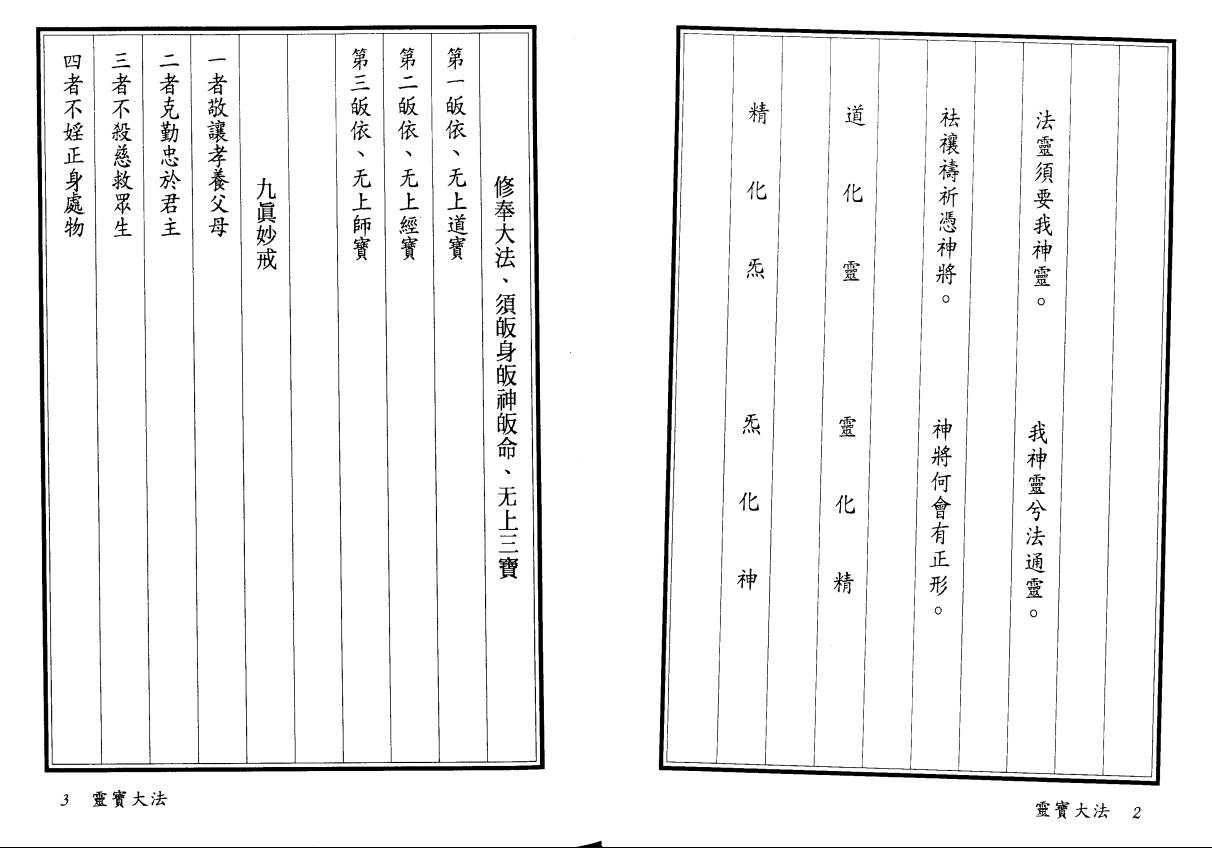 法靈須要我神靈。 我神靈兮法通靈。
祛禳禱祈憑神將。 神將何會有正形。
道化靈 靈化精
精化炁 炁化神
靈寶大法 2
修奉大法、須皈身皈神皈命、无上三寶
第一皈依、无上道寶
第二皈依、无上經寶
第三皈依、无上師寶
九眞妙戒
一者敬讓孝養父母
二者克勤忠於君主
三者不殺慈救眾生
四者不婬正身處物
3 靈寶大法